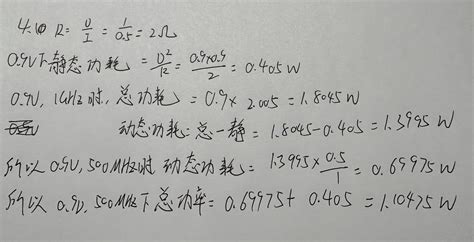 4.10 R = U/I = 1/0.5 = 2Ω
0.9V下静态功耗 = U²/R = 0.9×0.9/2 = 0.405W
0.9V, 1GHz时, 总功耗 = 0.9 × 2.005 = 1.8045W
动态功耗 = 总-静 = 1.8045-0.405 = 1.3995W
所以 0.9V, 500MHz时 动态功耗 = 1.3995 × 0.5/1 = 0.69975W
所以 0.9V, 500MHz下总功率 = 0.69975 + 0.405 = 1.10475W